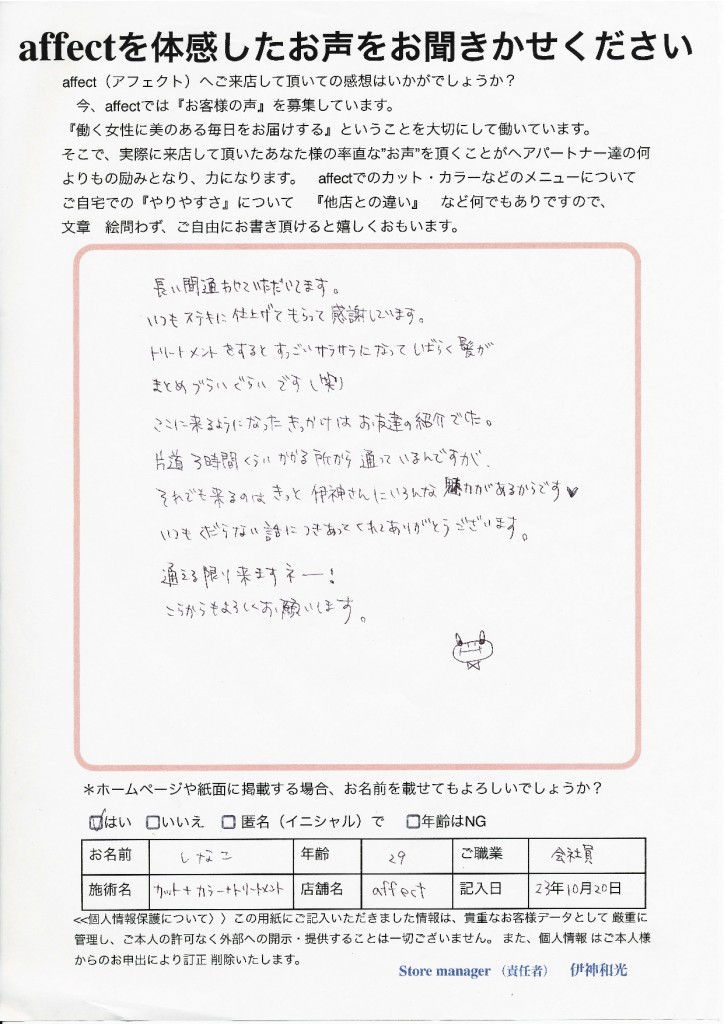 affectを体感したお声をお聞きかせください
affect（アフェクト）へご来店して頂いての感想はいかがでしょうか？
今、affectでは『お客様の声』を募集しています。
『働く女性に美のある毎日をお届けする』ということを大切にして働いています。
そこで、実際に来店して頂いたあなた様の率直な"お声"を頂くことがヘアパートナー達の何
よりもの励みとなり、力になります。 affectでのカット・カラーなどのメニューについて
ご自宅での『やりやすさ』について 『他店との違い』 など何でもありですので、
文章 絵問わず、ご自由にお書き頂けると嬉しくおもいます。
長い間通わせていただいてます。
いつもステキに仕上げてもらって感謝しています。
トリートメントをするとすっごいサラサラになってしばらく髪が
まとめづらいぐらいです（笑）
ここに来るようになったきっかけはお友達の紹介でした。
片道3時間くらいかかる所から通っているんですが、
それでも来るのはきっと伊神さんにいろんな魅力があるからです♥
いつもくだらない話につきあってくれてありがとうございます。
通える限り来ますネー！
こらからもよろしくお願いします。
＊ホームページや紙面に掲載する場合、お名前を載せてもよろしいでしょうか？
☑はい □いいえ □ 匿名（イニシャル）で □年齢はNG
お名前 しなこ 年齢 29 ご職業 会社員
施術名 カット+カラー+トリートメント 店舗名 affect 記入日 23年10月20日
<<個人情報保護について〉〉この用紙にご記入いただきました情報は、貴重なお客様データとして 厳重に
管理し、ご本人の許可なく外部への開示・提供することは一切ございません。 また、個人情報 はご本人様
からのお申出により訂正 削除いたします。
Store manager （責任者） 伊神和光